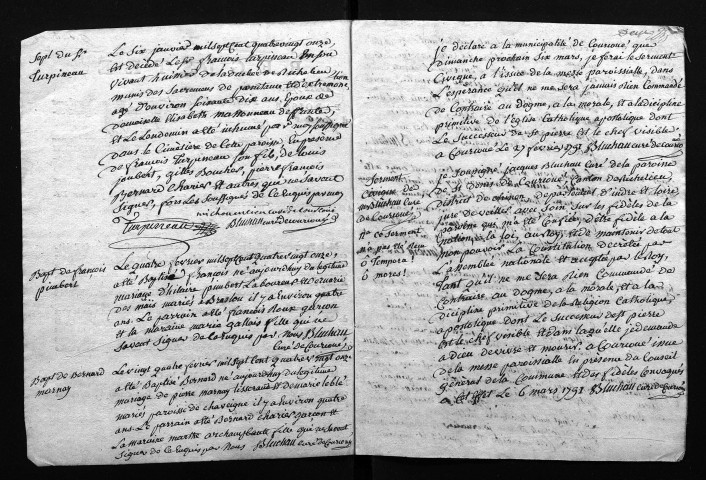 Sept. du Sr
Turpineau
Le Six janvier mil Sept Cent quatre vingt onze,
est décédé Le Sr françois turpineau
vivant huissier de La de Richelieu
muni des Sacremens de pénitence et d'extreme onction
agé d'environ Soixante dix ans. Epoux de
damoiselle Elisabeth Massonneau deffunte,
et Le Lendemain a eté inhumé par moy Soussigné
dans Le Cimétière de Cette paroisse. En présence
de françois Turpineau Son fils, de Louis
joubert, gilles Bouchet, pierre françois
Bernard Charier et autres qui ne Savent
Signer, fors Les Soussignés de Ce Enquis par moy
Turpineau
Bluchau curé de Courcoué
Bapt de françois
pimbert
Le quatre fevrier mil Sept Cent quatre vingt onze,
a eté Baptisé françois né aujourd'huy du légitime
mariage d'hilaire pimbert Laboureur et de marie
des mais mariés a Braslou il y a environ quatre
ans. Le parrain a eté françois Roux garçon
et La maraine marie gallois fille qui ne
Savent Signer de Ce Enquis par Nous Bluchau
Curé de Courcoué
Bapt de Bernard
marnay
Le vingt quatre fevrier mil Sept Cent quatre vingt onze
a eté Baptisé Bernard né aujourd'huy du légitime
mariage de pierre marnay tisserand et de marie
mariés paroisse de chaveigne il y a environ quatre
ans. Le parrain a eté Bernard Charier garçon et
La maraine marthe archambault fille qui ne Savent
Signer de Ce Enquis par Nous Bluchau curé de Courcoué
je déclare a la municipalité de Courcoué que
Dimanche prochain Six mars, je ferai le Serment
Civique, a l'issue de la messe paroissiale, dans
l'esperance qu'il ne me Sera jamais Rien Commandé
de Contraire au dogme, a la morale, et a la discipline
primitive de l'eglise Catholique apostolique dont
Le Successeur de St pierre est le chef visible.
a Courcoué Le 27 fevrier 1791 Bluchau curé de Courcoué
Serment
Civique de
Mr Bluchau Curé
de Courcoué,
ô Tempora!
ô mores!
je Soussigné jacques Bluchau Curé de la paroisse
de St Denis de Courcoué, Canton de Richelieu,
District de chinon, département d'indre et Loire
jure de veiller avec Soin Sur les fideles de la
paroisse qui m'a eté Confiée, d'être fidele a la
nation, a la loi, au Roy, et de maintenir de tout
mon pouvoir La Constitution décretée par
L'assemblée nationale et acceptée par le Roy,
tant qu'il ne me Sera Rien Commandé de
Contraire au dogme, a la morale, et a la
discipline primitive de la Religion Catholique,
apostolique dont Le Successeur de St pierre
est le chef visible et dans laquelle je demande
a dieu de vivre et mourir. a Courcoué issue
de la messe paroissiale en présence du Conseil
général de la Commune et des fideles Convoqués
a cet effet Le 6 mars 1791 Bluchau curé de Courcoué